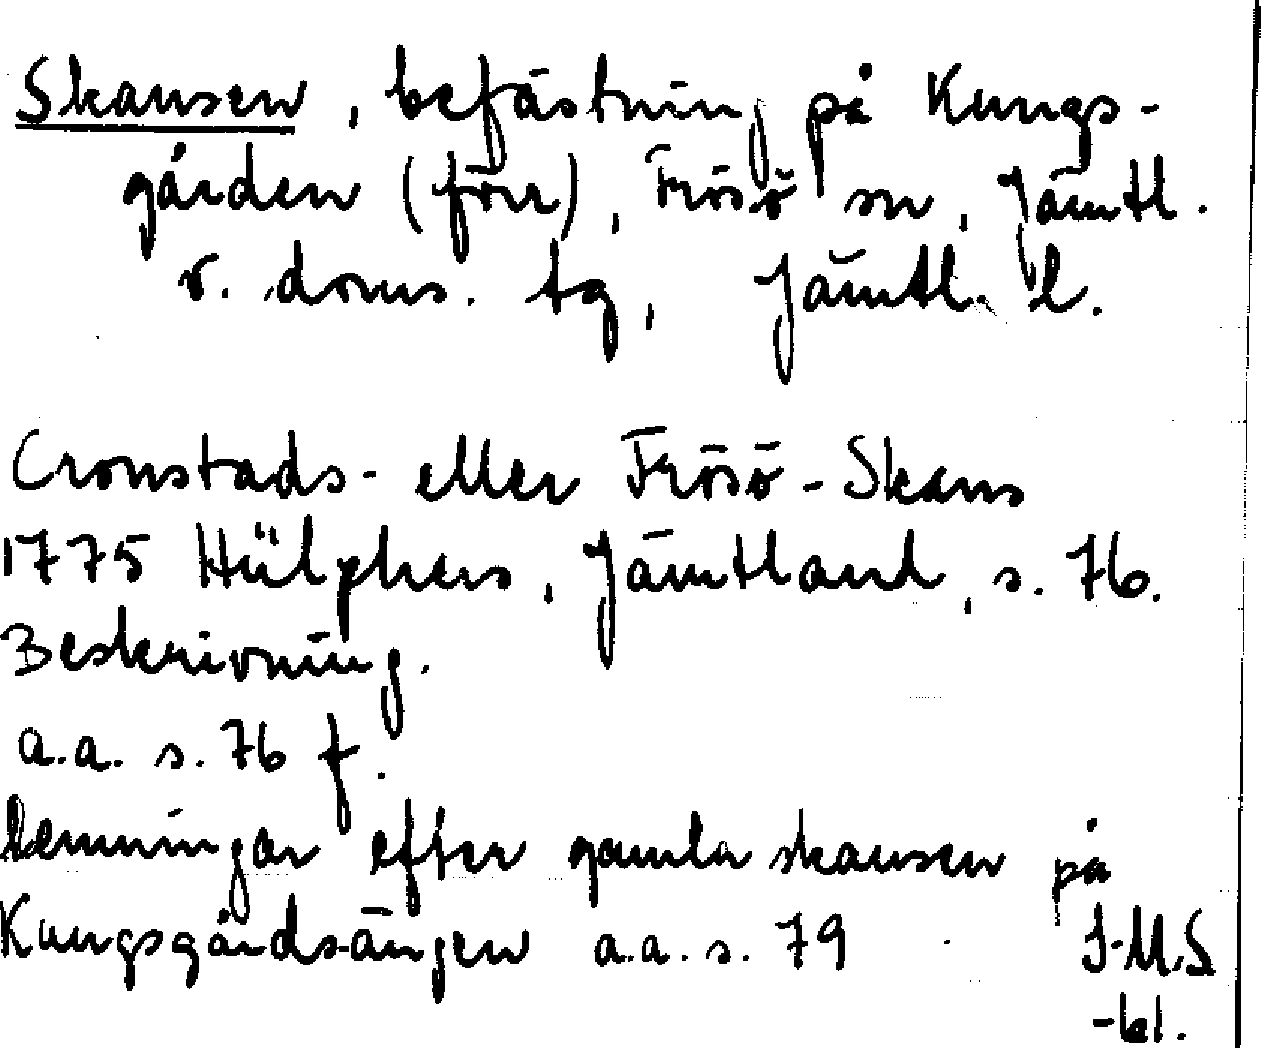 Skansen, befästning på Kungs-
gården (förr), Frösö sn, Jämtl.
v. doms. tg, Jämtl. l.
Cronstads- eller Frösö-Skans
1775 Hülphers, Jämtland, s. 76.
Beskrivning.
a.a. s. 76 f.
lemningar efter gamla skansen på
Kungsgårdsängen a.a. s. 79
J-M.S
-61.